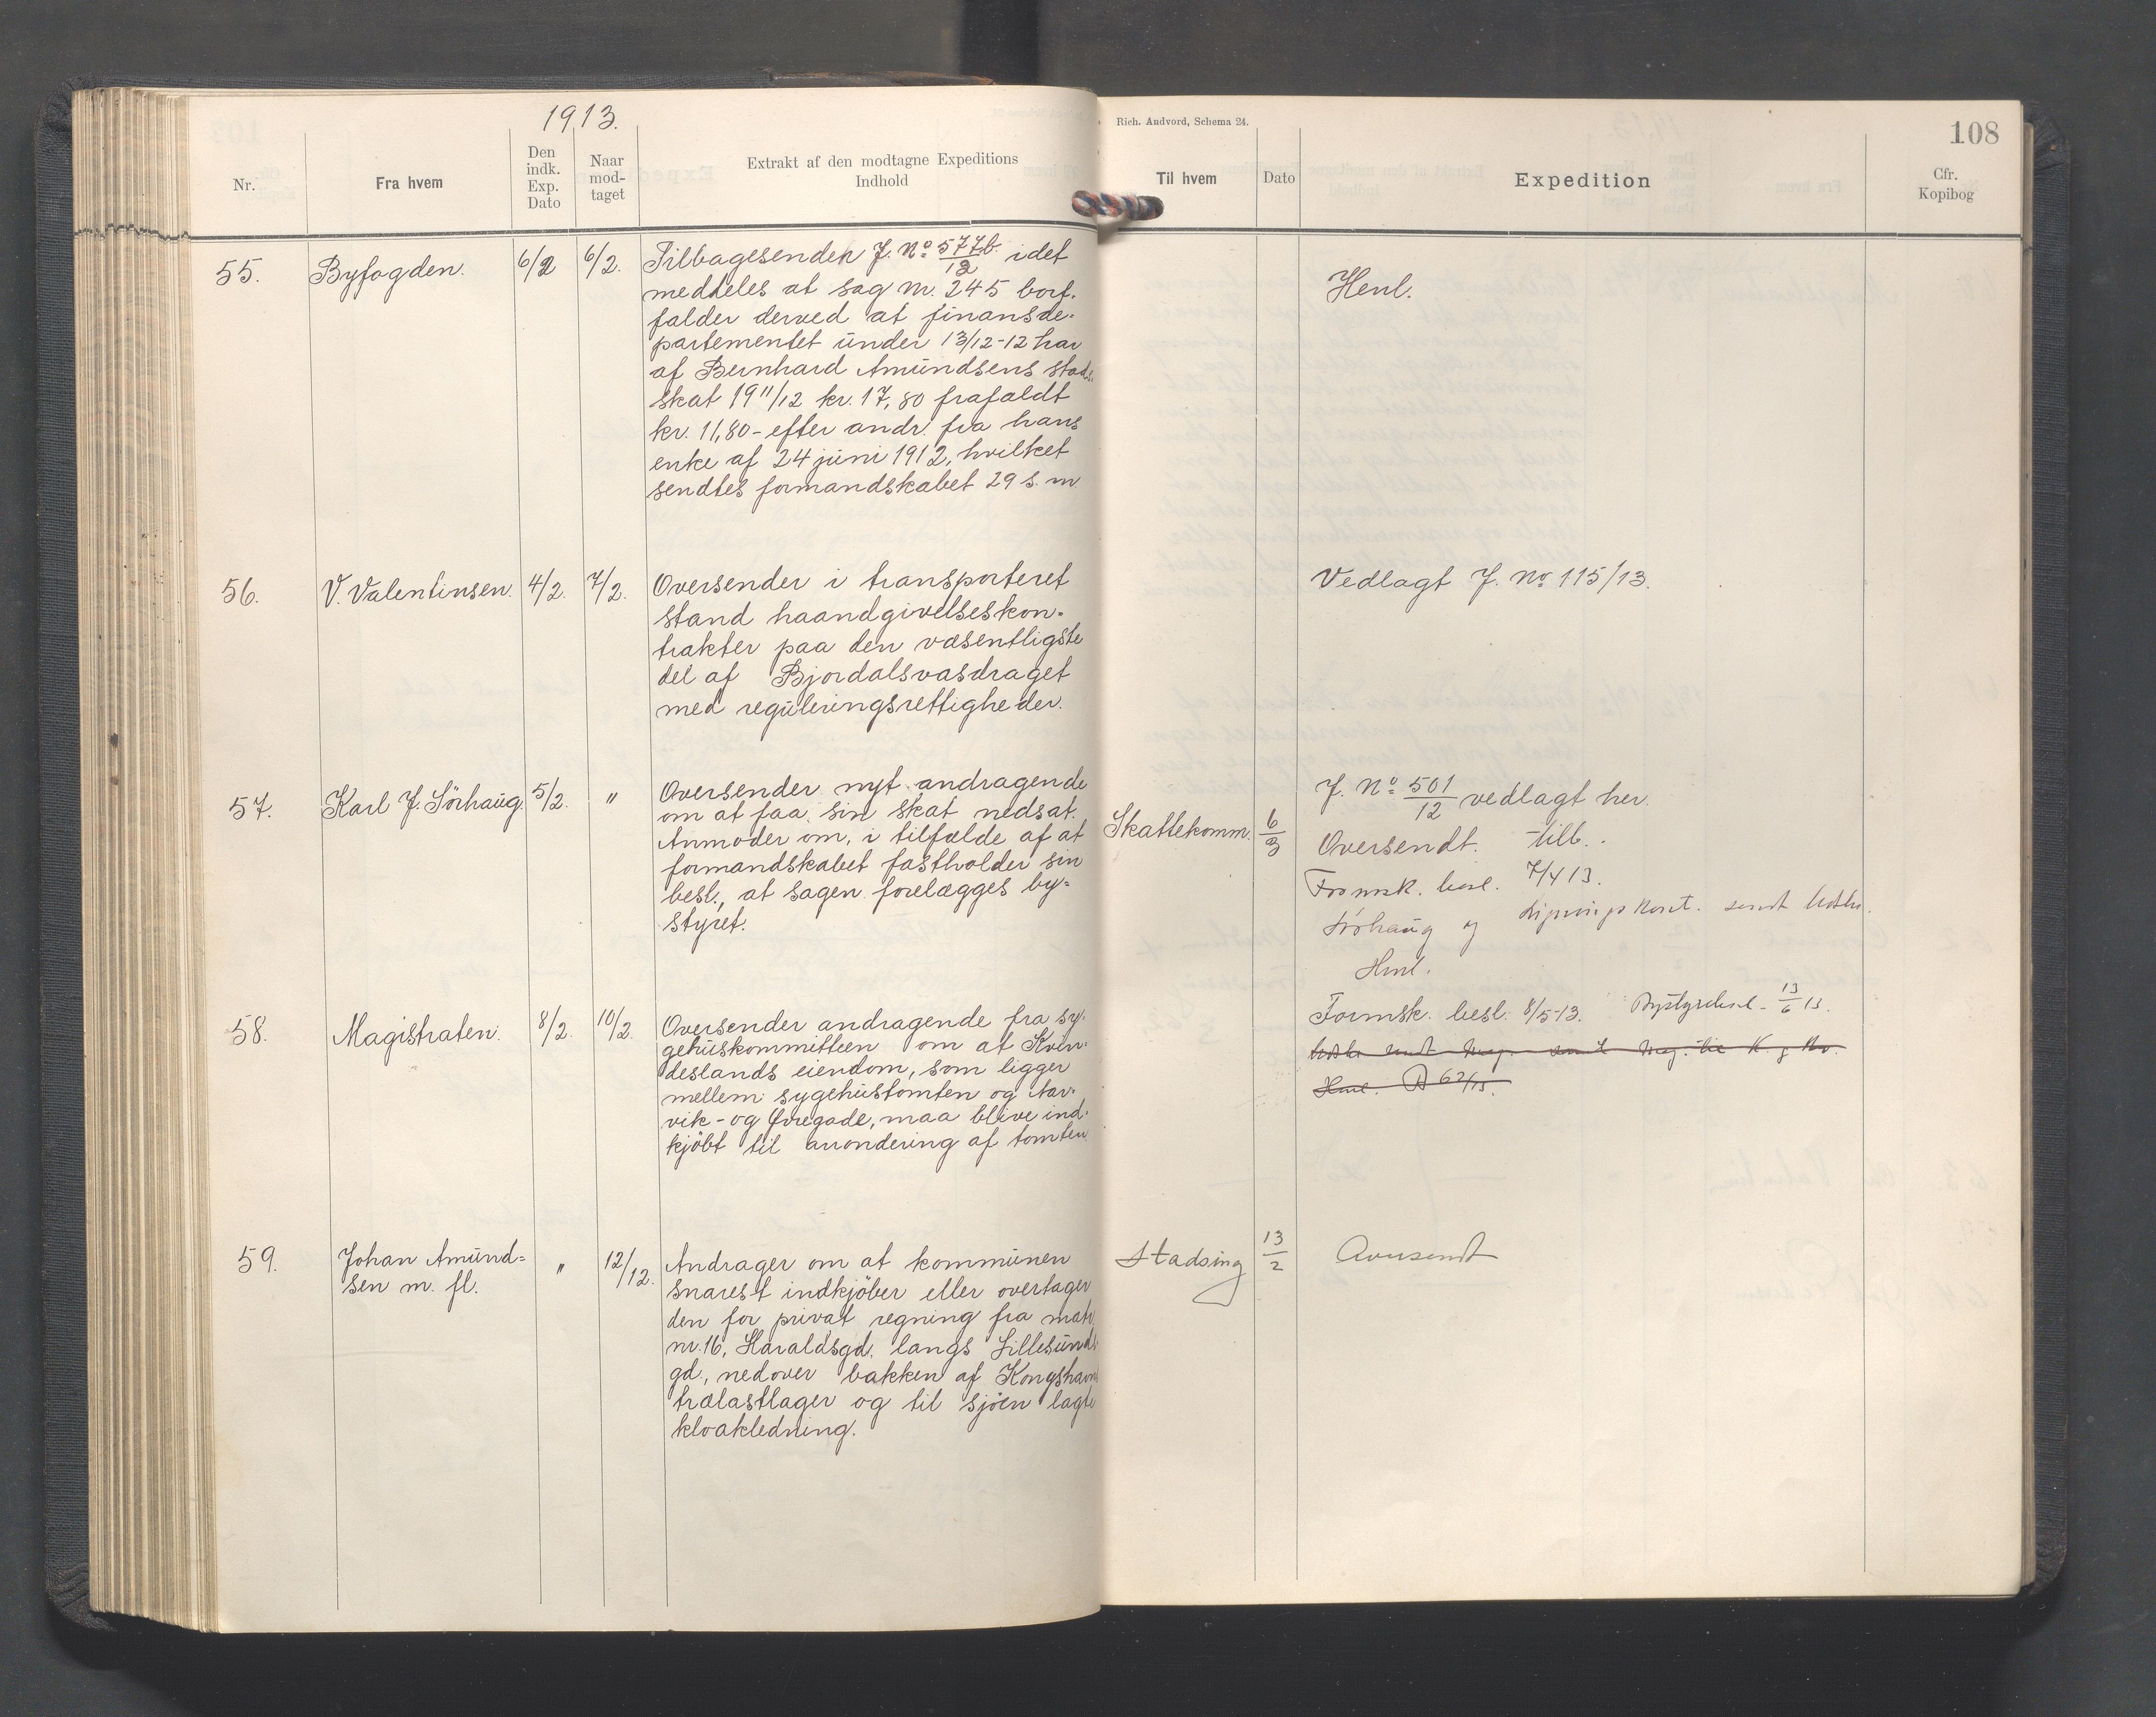 1913.
Rich. Andvord, Schema 24.
108
Nr.
Fra hvem
Den indk. Exp. Dato
Naar mod-taget
Extrakt af den modtagne Expeditions Indhold
Til hvem
Dato
Expedition
Cfr. Kopibog
55. Byfogden. 6/2 6/2. Tilbagesender J. No 577b/12 idet
meddeles at sag nr. 245 bort-
falder derved at finansde-
partementet under 13/12-12 har
af Bernhard Amundsens stads-
skat 1911/12 kr. 17,80 frafaldt
kr. 11,80 - efter andr. fra hans
enke af 24 juni 1912, hvilket
sendtes formandskabet 29 s. m.
Henl.
56. V. Valentinsen. 4/2. 7/2. Oversender i transporteret
stand haandgivelseskon-
trakter paa den væsentligste
del af Bjordalsvasdraget
med reguleringsrettigheder.
Vedlagt J. No 115/13.
57. Karl J. Sörhaug. 5/2. " Oversender nyt andragende
om at faa sin skat nedsat.
Anmoder om, i tilfælde af at
formandskabet fastholder sin
besl., at sagen forelægges by-
styret.
J. No 501/12 vedlagt her.
Skattekomm. 6/3 Oversendt. tilb.
Formsk. besl. 7/4 13.
Sörhaug og Ligningskont. sendt
Henl.
58. Magistraten. 8/2. 10/2. Oversender andragende fra sy-
gehuskommitteen om at Kvin-
deslands eiendom, som ligger
mellem sygehustomten og Nar-
vik- og Øvregade, maa blive ind-
kjöbt til arrondering af tomten
Formsk. besl. 8/5-13. Bystyrebesl. 13/6 13.
Henl.
59. Johan Amund-
sen m. fl. " 12/12. Andrager om at kommunen
snarest indkjöber eller overtager
den for privat regning fra matr.
nr. 16, Haraldsgd. langs Lillesunds-
gd., nedover bakken af Kongshavns
trælastlager og til sjöen lagte
kloakledning.
Stadsing 13/2 Oversendt